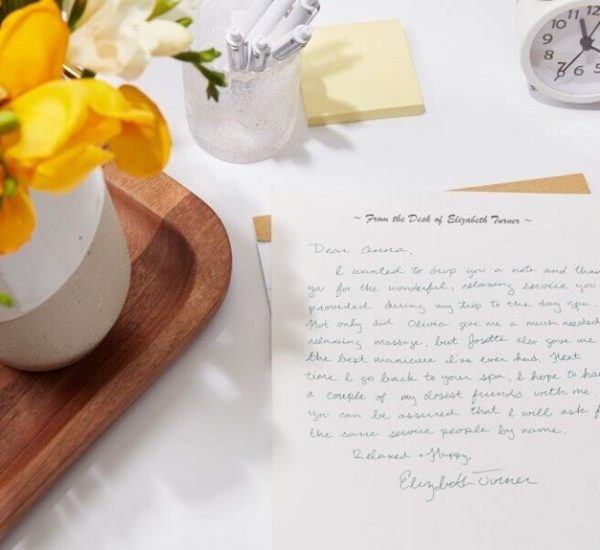 10
11
12
9
8
7
6
5
~ From the Desk of Elizabeth Turner ~
Dear Anna,
I wanted to drop you a note and than
you for the wonderful, relaxing service you
provided during my trip to the day spa.
Not only did Olivia give me a much needed
relaxing massage, but Josette also gave me
the best manicure I've ever had. Next
time I go back to your spa, I hope to ha
a couple of my closest friends with me.
You can be assured that I will ask f
the same service people by name.
Relaxed + Happy,
Elizabeth Turner